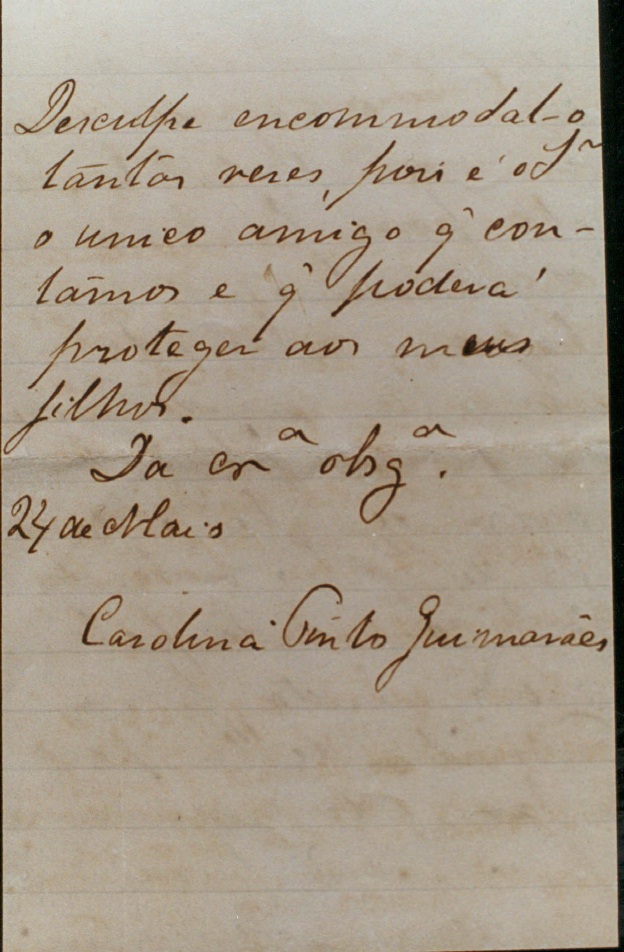 Desculpe encommodal-o
tantas veses, pois é o Sr
o unico amigo q̃ con-
tamos e q̃ poderá
proteger aos meus
filhos.
Da crª obgª.
24 de Maio
Carolina Pinto Guimarães